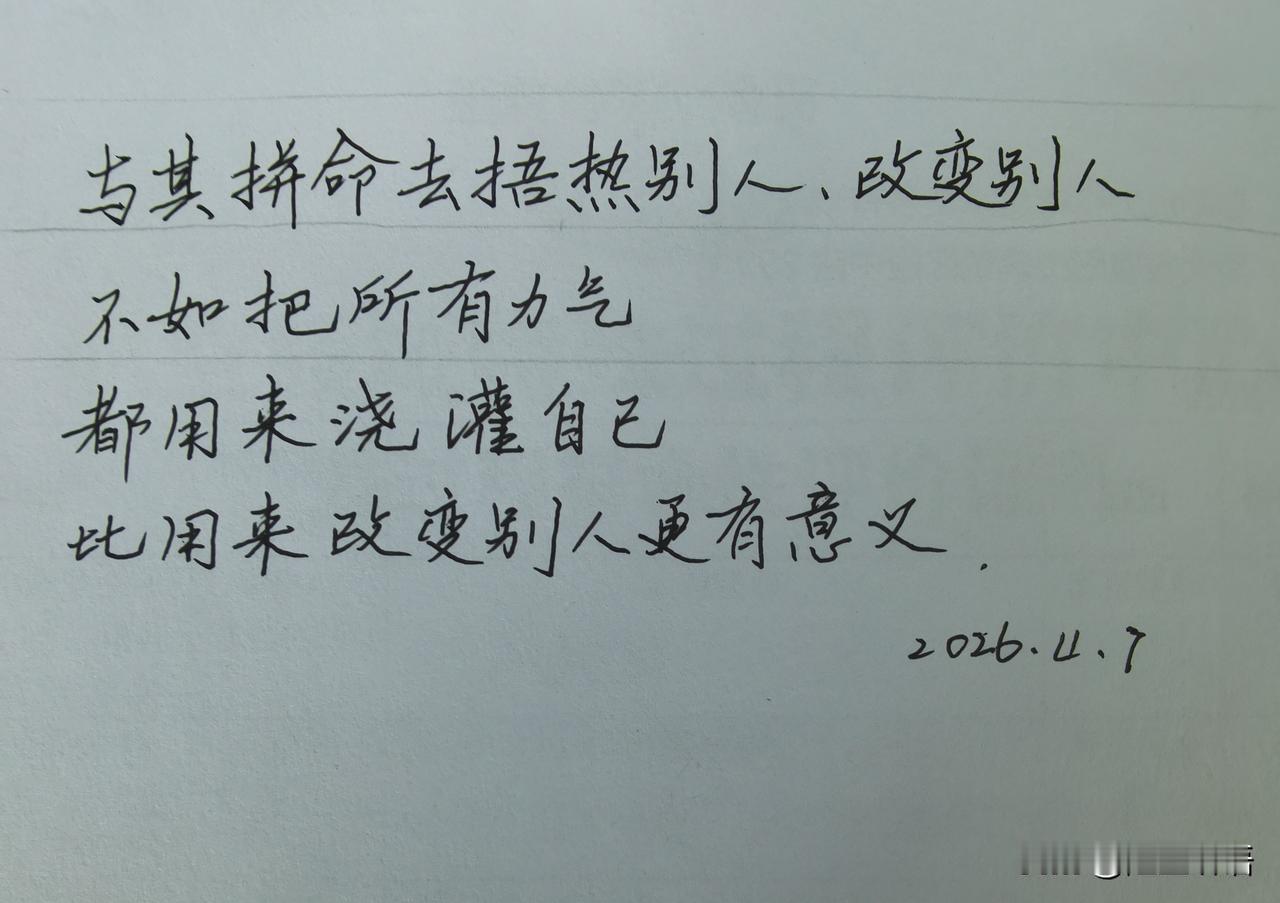 与其拼命去捂热别人、改变别人
不如把所有力气
都用来浇灌自己
比用来改变别人更有意义.
2026.4.7